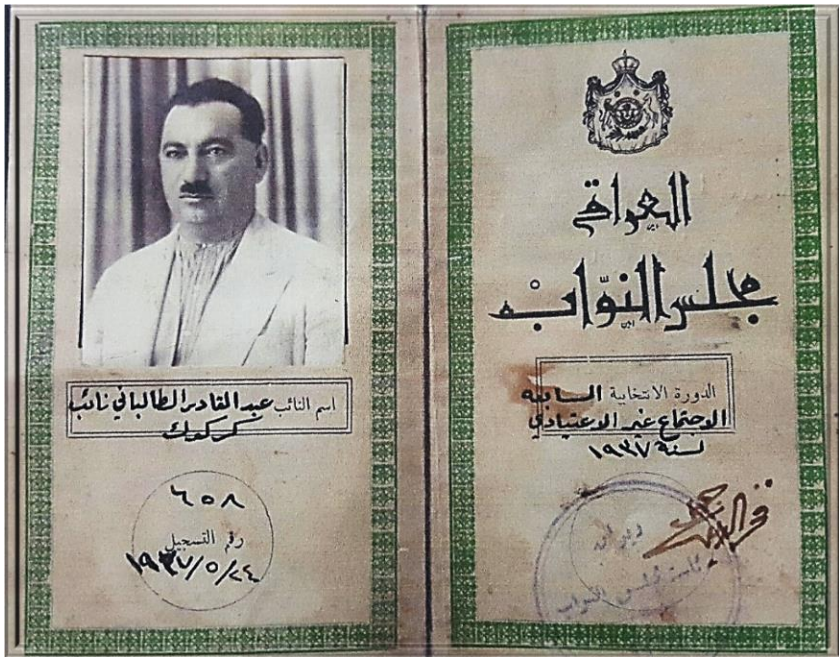 العراق
مجلس النوّاب
الدورة الانتخابية السابعة
الاجتماع غير الاعتيادي
لسنة ١٩٣٧
ديوان
رئاسة مجلس النواب
اسم النائب عبد القادر الطالباني نائب
كركوك
٦٥٨
رقم التسجيل
١٩٣٧/٥/٢٤